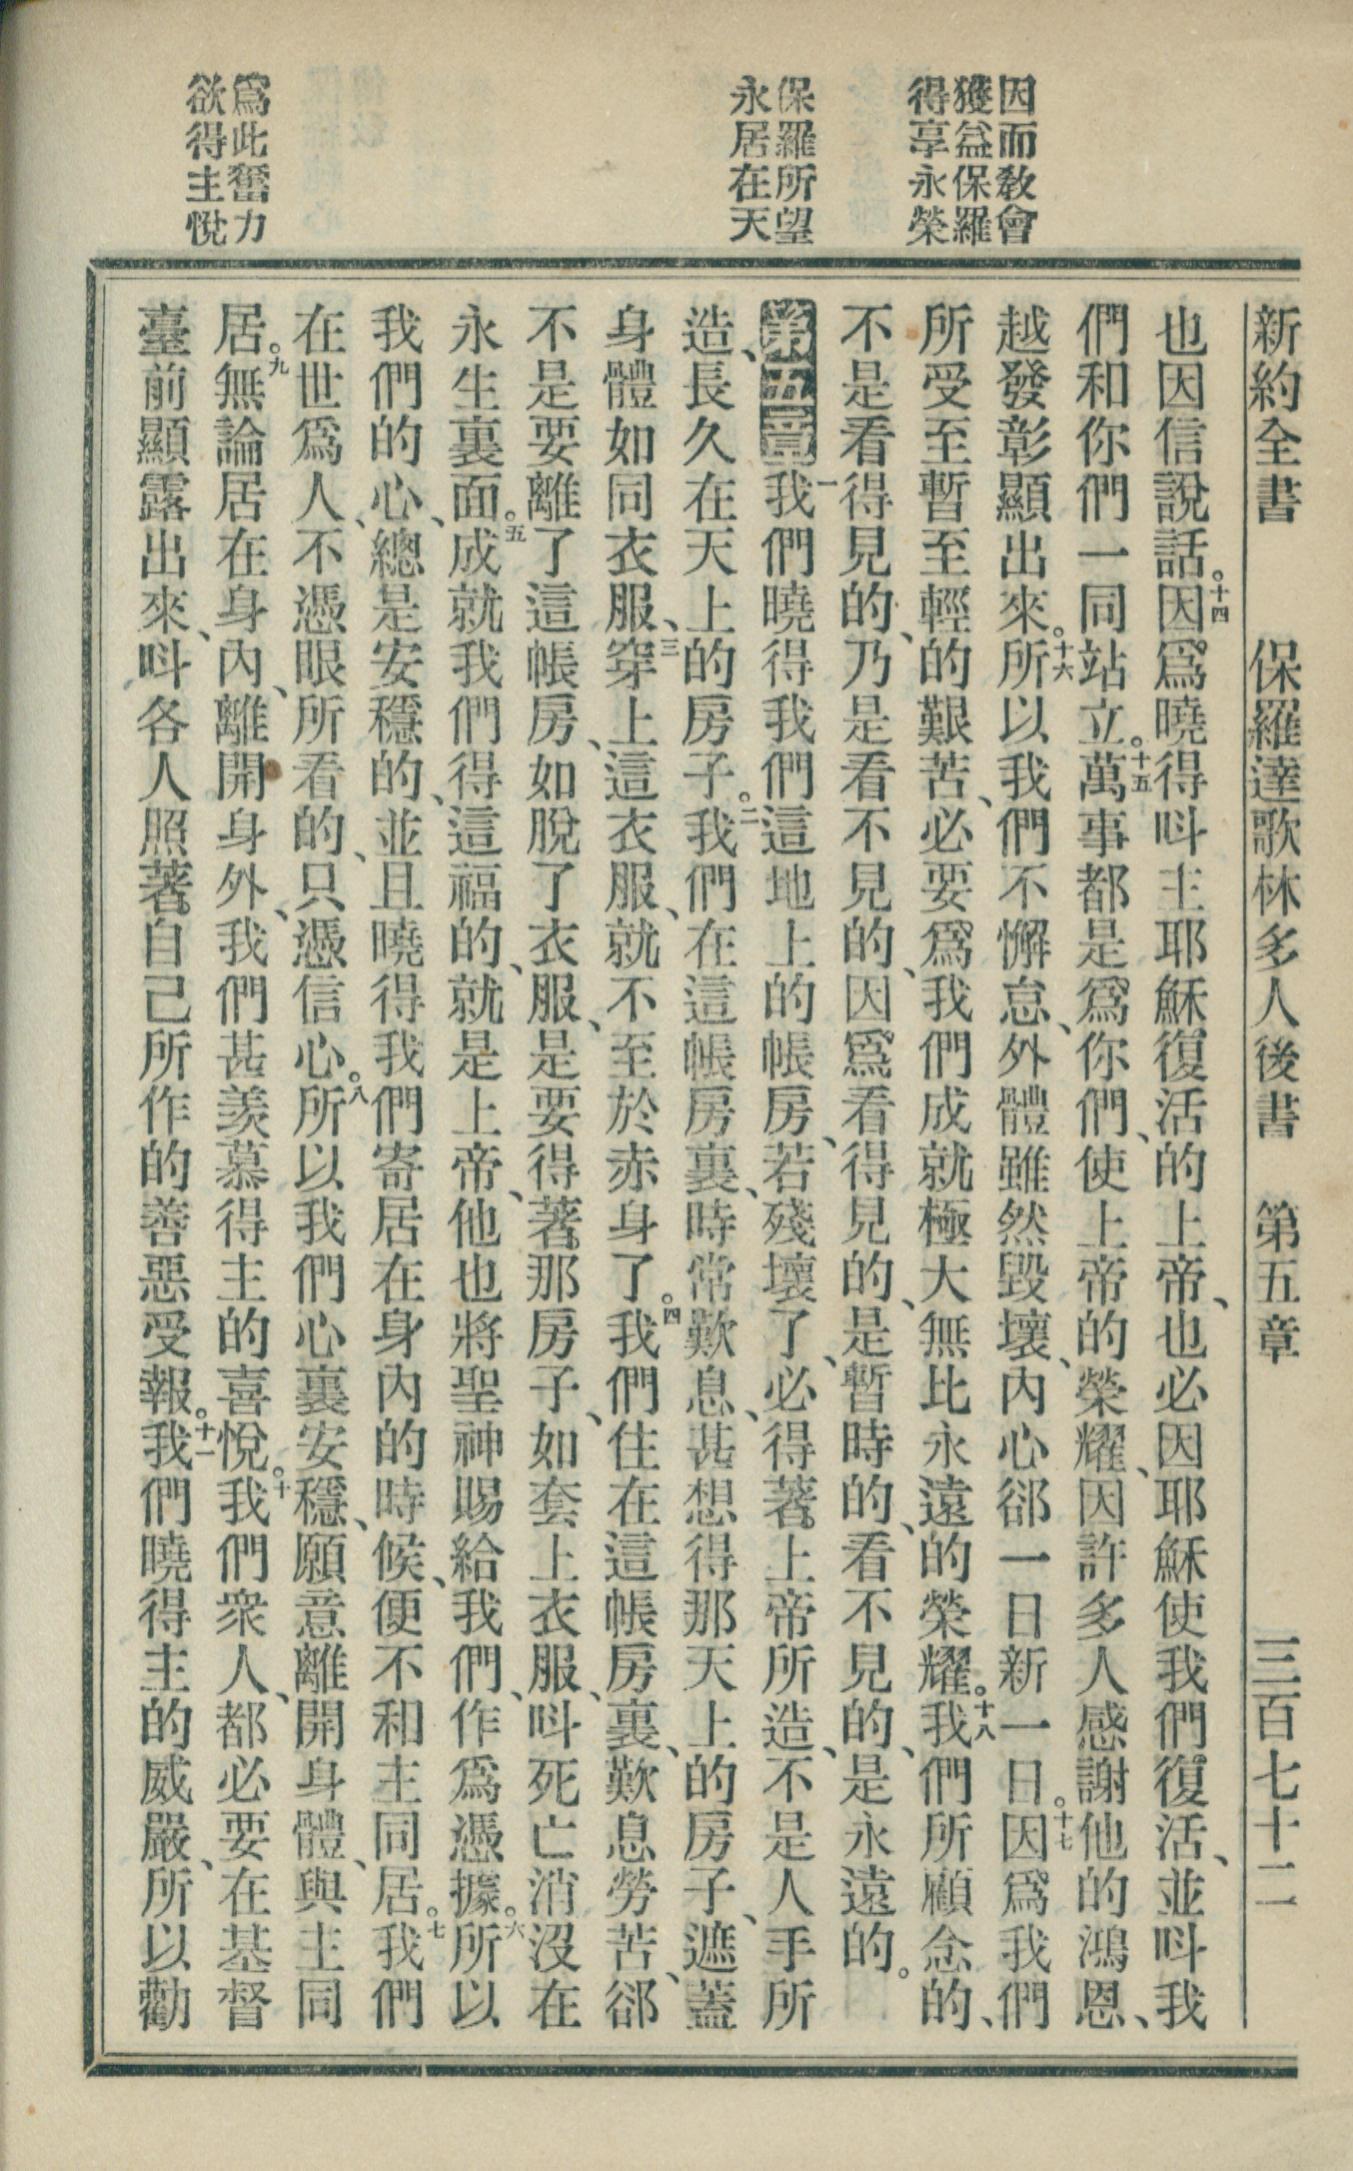 因而敎會
獲益保羅
得享永榮
保羅所望
永居在天
爲此奮力
欲得主悅
新約全書　保羅達歌林多人後書　第五章　三百七十二
也因信說話。十四因爲曉得呌主耶穌復活的上帝、也必因耶穌使我們復活、並呌我
們和你們一同站立。十五萬事都是爲你們、使上帝的榮耀、因許多人感謝他的鴻恩、
越發彰顯出來。十六所以我們不懈怠、外體雖然毀壞、內心郤一日新一日。十七因爲我們
所受至暫至輕的艱苦、必要爲我們成就極大無比永遠的榮耀。十八我們所顧念的、
不是看得見的、乃是看不見的、因爲看得見的、是暫時的、看不見的、是永遠的。
第五章一我們曉得我們這地上的帳房、若殘壞了、必得著上帝所造、不是人手所
造、長久在天上的房子。二我們在這帳房裏、時常歎息、甚想得那天上的房子、遮蓋
身體如同衣服、三穿上這衣服、就不至於赤身了。四我們住在這帳房裏、歎息勞苦、郤
不是要離了這帳房、如脫了衣服、是要得著那房子、如套上衣服、呌死亡消沒在
永生裏面。五成就我們得這福的、就是上帝、他也將聖神賜給我們、作爲憑據。六所以
我們的心、總是安穩的、並且曉得我們寄居在身內的時候、便不和主同居。七我們
在世爲人、不憑眼所看的、只憑信心。八所以我們心裏安穩、願意離開身體、與主同
居。九無論居在身內、離開身外、我們甚羨慕得主的喜悅。十我們衆人、都必要在基督
臺前顯露出來、呌各人照著自己所作的善惡受報。十一我們曉得主的威嚴、所以勸